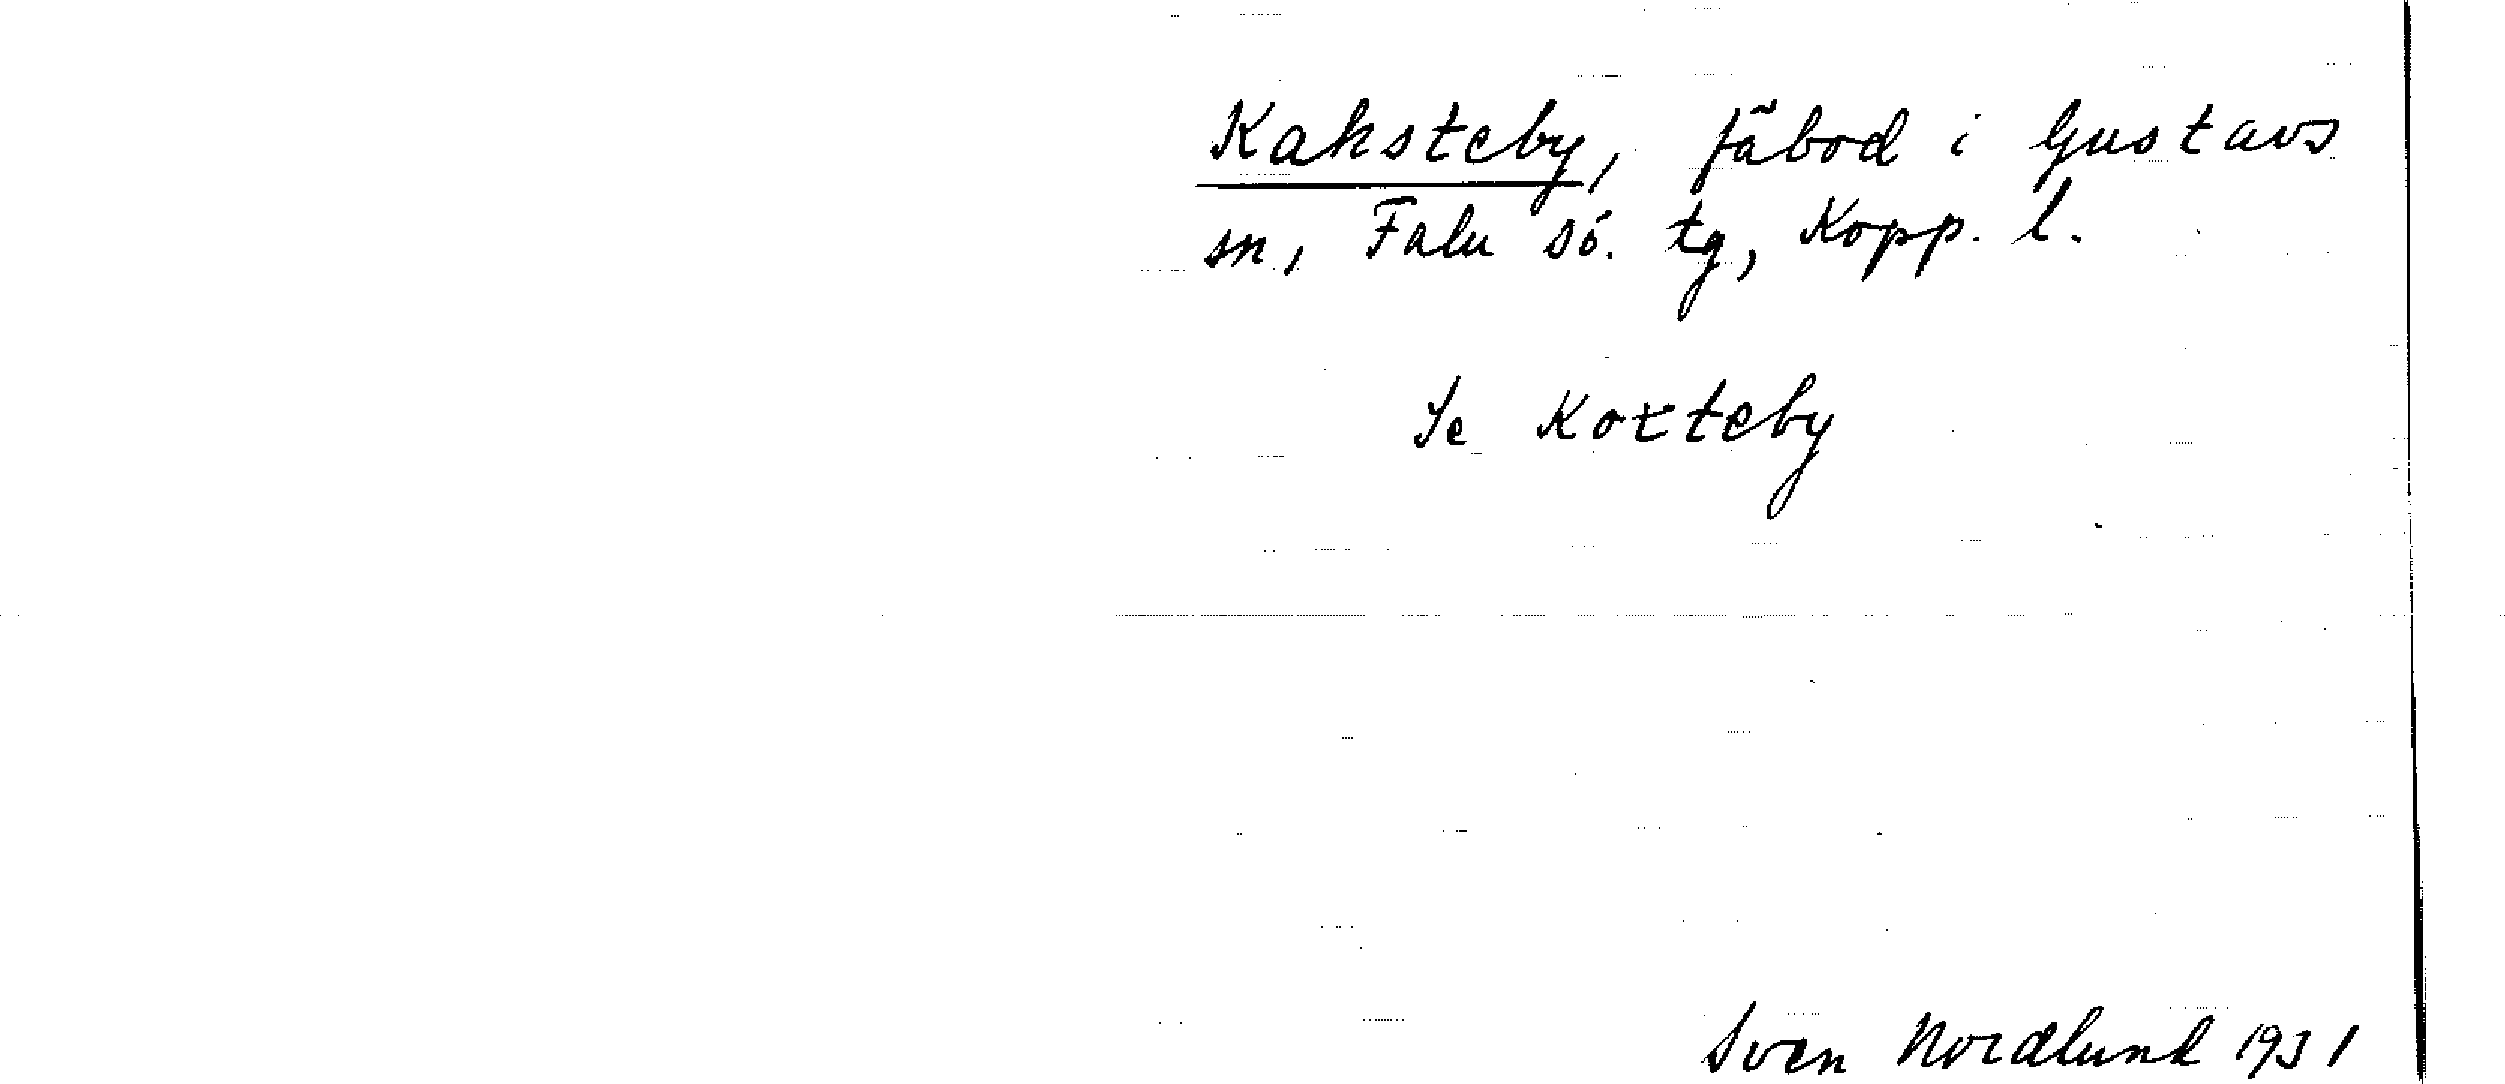 Kaksteby, fäbod i Gustavs
sn, Falu sö. tg, Kopp. l.
Se Koxteby
Sven Nordlund 1931